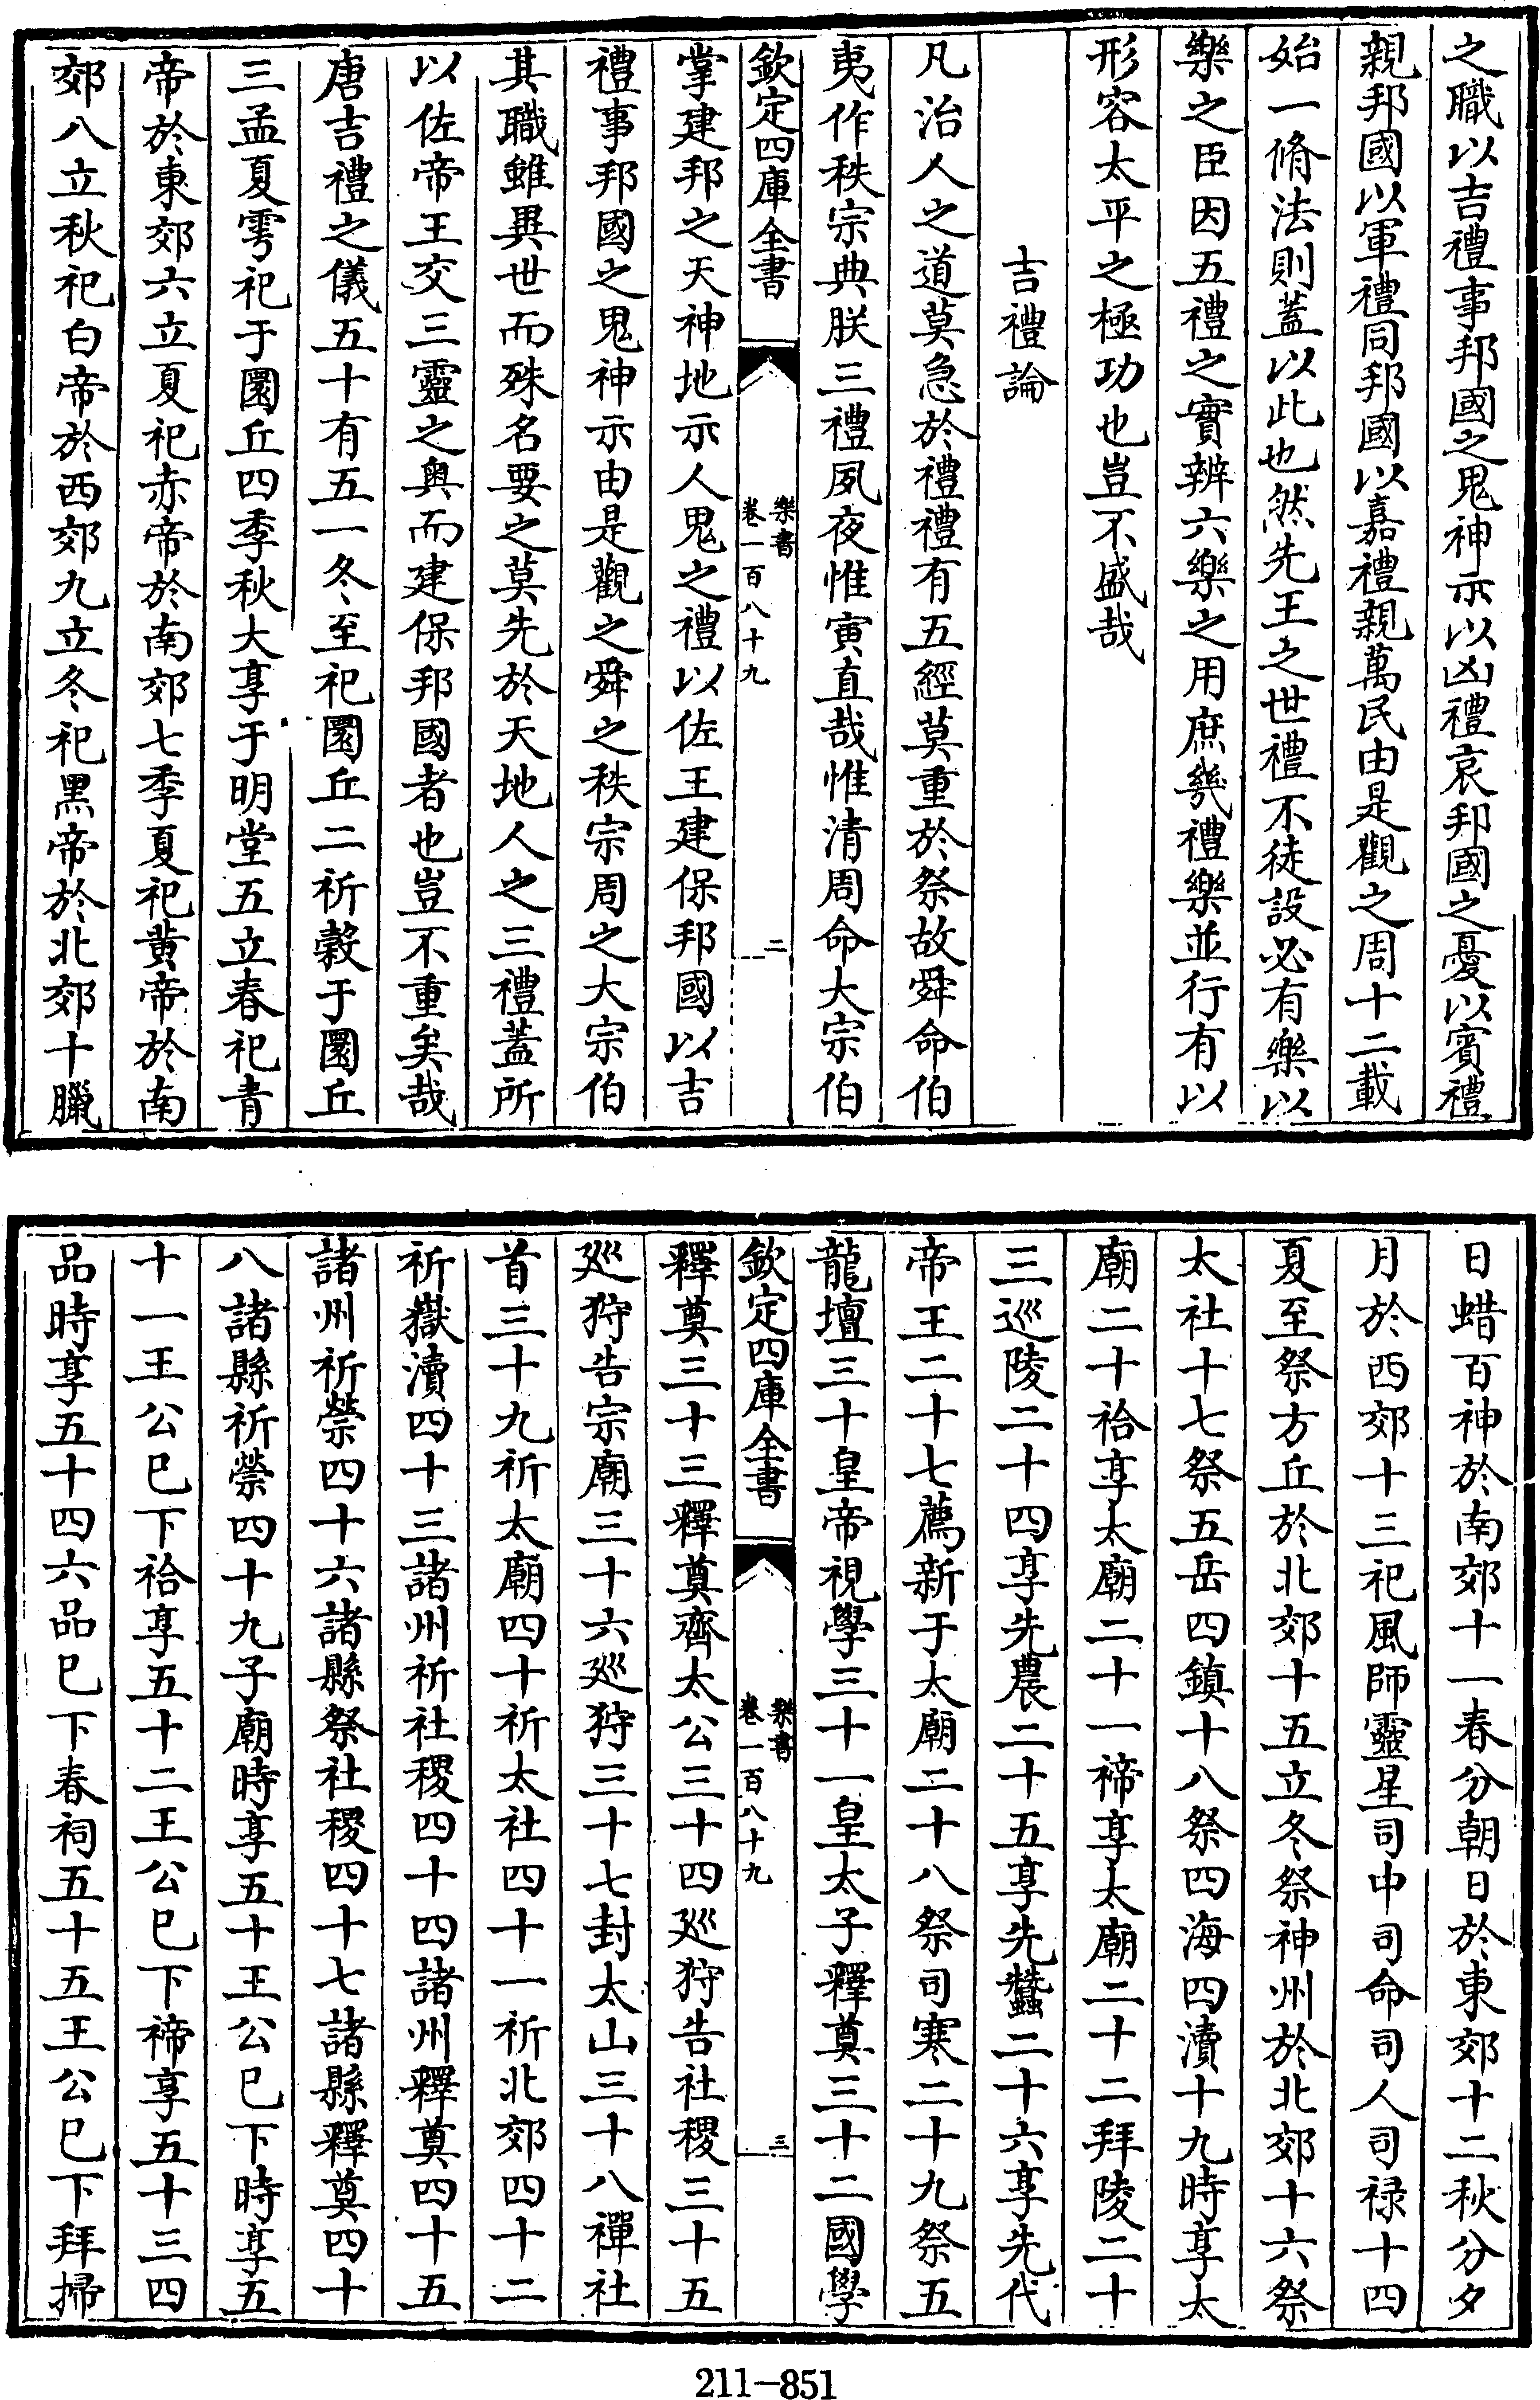 之職以吉禮事邦國之鬼神示以凶禮哀邦國之憂以賓禮
親邦國以軍禮同邦國以嘉禮親萬民由是觀之周十二載
始一脩法則蓋以此也然先王之世禮不徒設必有樂以
樂之臣因五禮之實辨六樂之用庶幾禮樂並行有以
形容太平之極功也豈不盛哉
吉禮論
凡治人之道莫急於禮禮有五經莫重於祭故舜命伯
夷作秩宗典朕三禮夙夜惟寅直哉惟清周命大宗伯
欽定四庫全書
樂書
卷一百八十九
二
掌建邦之天神地示人鬼之禮以佐王建保邦國以吉
禮事邦國之鬼神示由是觀之舜之秩宗周之大宗伯
其職雖異世而殊名要之莫先於天地人之三禮蓋所
以佐帝王交三靈之奥而建保邦國者也豈不重矣哉
唐吉禮之儀五十有五一冬至祀圜丘二祈穀于圜丘
三孟夏雩祀于圜丘四季秋大享于明堂五立春祀青
帝於東郊六立夏祀赤帝於南郊七季夏祀黄帝於南
郊八立秋祀白帝於西郊九立冬祀黑帝於北郊十臘
日蜡百神於南郊十一春分朝日於東郊十二秋分夕
月於西郊十三祀風師靈星司中司命司人司禄十四
夏至祭方丘於北郊十五立冬祭神州於北郊十六祭
太社十七祭五岳四鎮十八祭四海四瀆十九時享太
廟二十祫享太廟二十一禘享太廟二十二拜陵二十
三巡陵二十四享先農二十五享先蠶二十六享先代
帝王二十七薦新于太廟二十八祭司寒二十九祭五
龍壇三十皇帝視學三十一皇太子釋奠三十二國學
欽定四庫全書
樂書
卷一百八十九
三
釋奠三十三釋奠齊太公三十四廵狩告社稷三十五
廵狩告宗廟三十六廵狩三十七封太山三十八禪社
首三十九祈太廟四十祈太社四十一祈北郊四十二
祈嶽瀆四十三諸州祈社稷四十四諸州釋奠四十五
諸州祈禜四十六諸縣祭社稷四十七諸縣釋奠四十
八諸縣祈禜四十九子廟時享五十王公已下時享五
十一王公已下祫享五十二王公已下禘享五十三四
品時享五十四六品已下春祠五十五王公已下拜掃
211-851